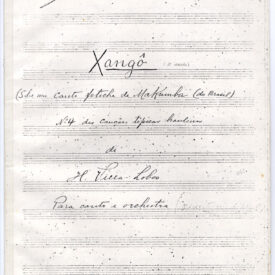 Xangô
(Sôbre um canto fetiche de Makumba (do Brasil)
Nº 4 das canções típicas brasileiras
de
H. Villa-Lobos
Para canto e orchestra